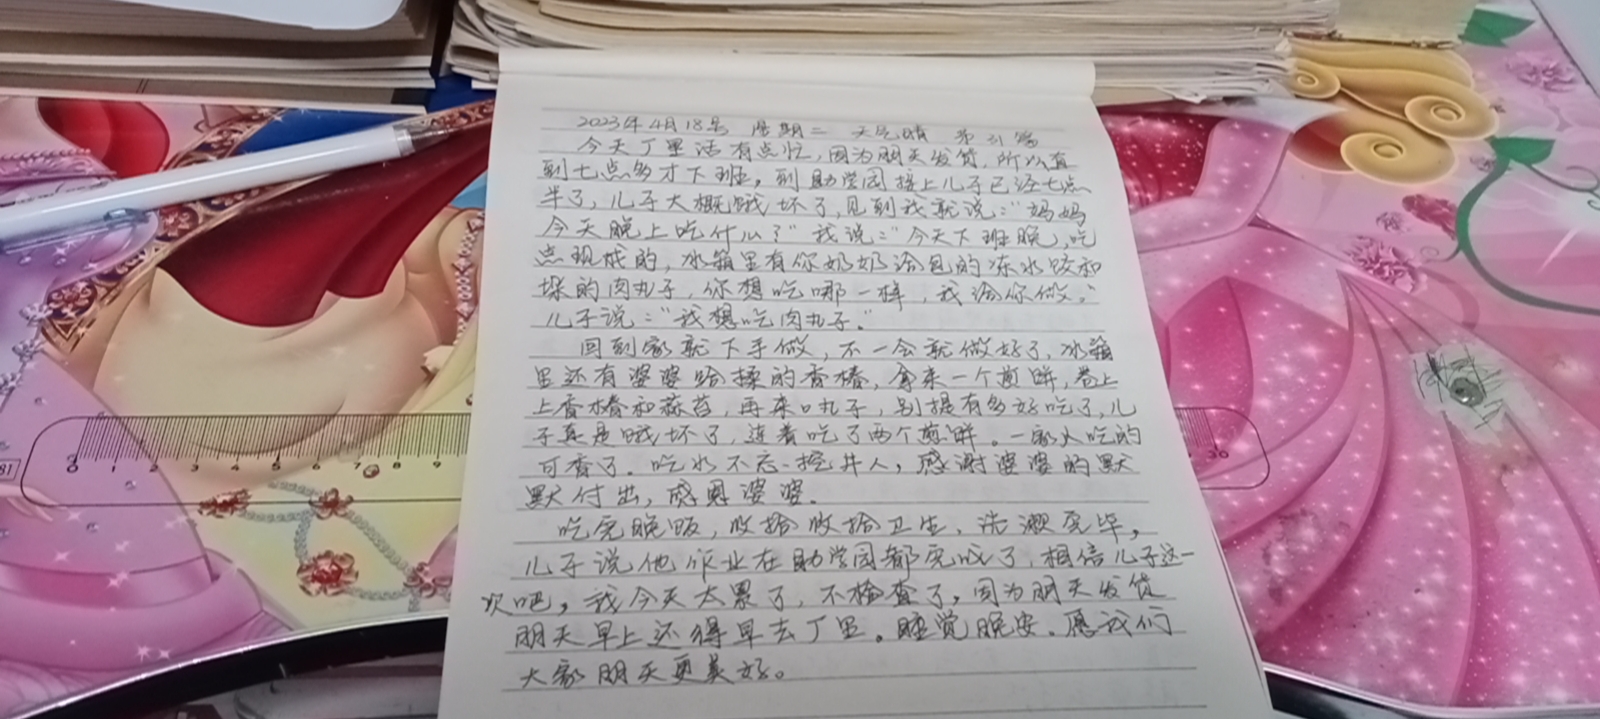 2023年4月18号 星期二 天气晴 第31篇
今天厂里活有点忙,因为明天发货,所以直
到七点多才下班,到助学园接上儿子已经七点
半了,儿子大概饿坏了,见到我就说:“妈妈
今天晚上吃什么?”我说:“今天下班晚,吃
点现成的,冰箱里有你奶奶给包的冻水饺和
的肉丸子,你想吃哪一样,我给你做。”
儿子说:“我想吃肉丸子。”
回到家就下手做,不一会就做好了,冰箱
里还有婆婆给揉的香椿,拿来一个煎饼,卷上
上香椿和蒜苔,再来口丸子,别提有多好吃了,儿
子真是饿坏了,连着吃了两个煎饼。一家人吃的
可香了。吃水不忘挖井人,感谢婆婆的默
默付出,感恩婆婆。
吃完晚饭,收拾收拾卫生,洗漱完毕,
儿子说他作业在助学园都完成了,相信儿子这一
次吧,我今天太累了,不检查了,因为明天发货
明天早上还得早去厂里。睡觉晚安。愿我们
大家明天更美好。
0 1 2 3 4 5 6 7 8 9
30